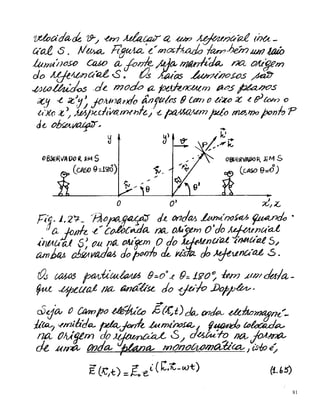 velocidade v, em relação a um referencial iner-
cial S. Nessa Figura é mostrado também um raio
luminoso caso a fonte seja mantida na origem
do referencial S. Os raios luminosos são
escolhidos de modo a pertencerem aos planos
xy e x'y', formando ângulos θ com o eixo x e θ' com o
eixo x', respectivamente, e passarem pelo mesmo ponto P
de observação.
y y' v P
OBSERVADOR EM S OBSERVADOR EM S
(CASO θ=180°) (CASO θ=0°)
θ θ'
O O' x', x
Fig. 1.27 - Propagação de ondas luminosas quando
a fonte é colocada na origem O' do referencial
inercial S', ou na origem O do referencial inercial S,
ambas observadas do ponto de vista do referencial S.
Os casos particulares θ=0° e θ=180°, tem um desta-
que especial na análise do efeito Doppler.
Seja o campo elétrico E(r,t) da onda eletromagné-
tica, emitida pela fonte luminosa, quando colocada
na origem do referencial S, descrito na forma
de uma onda plana monocromática, isto é,
E(r,t) = E₀ e^i(k.r-wt) (1.65)
81